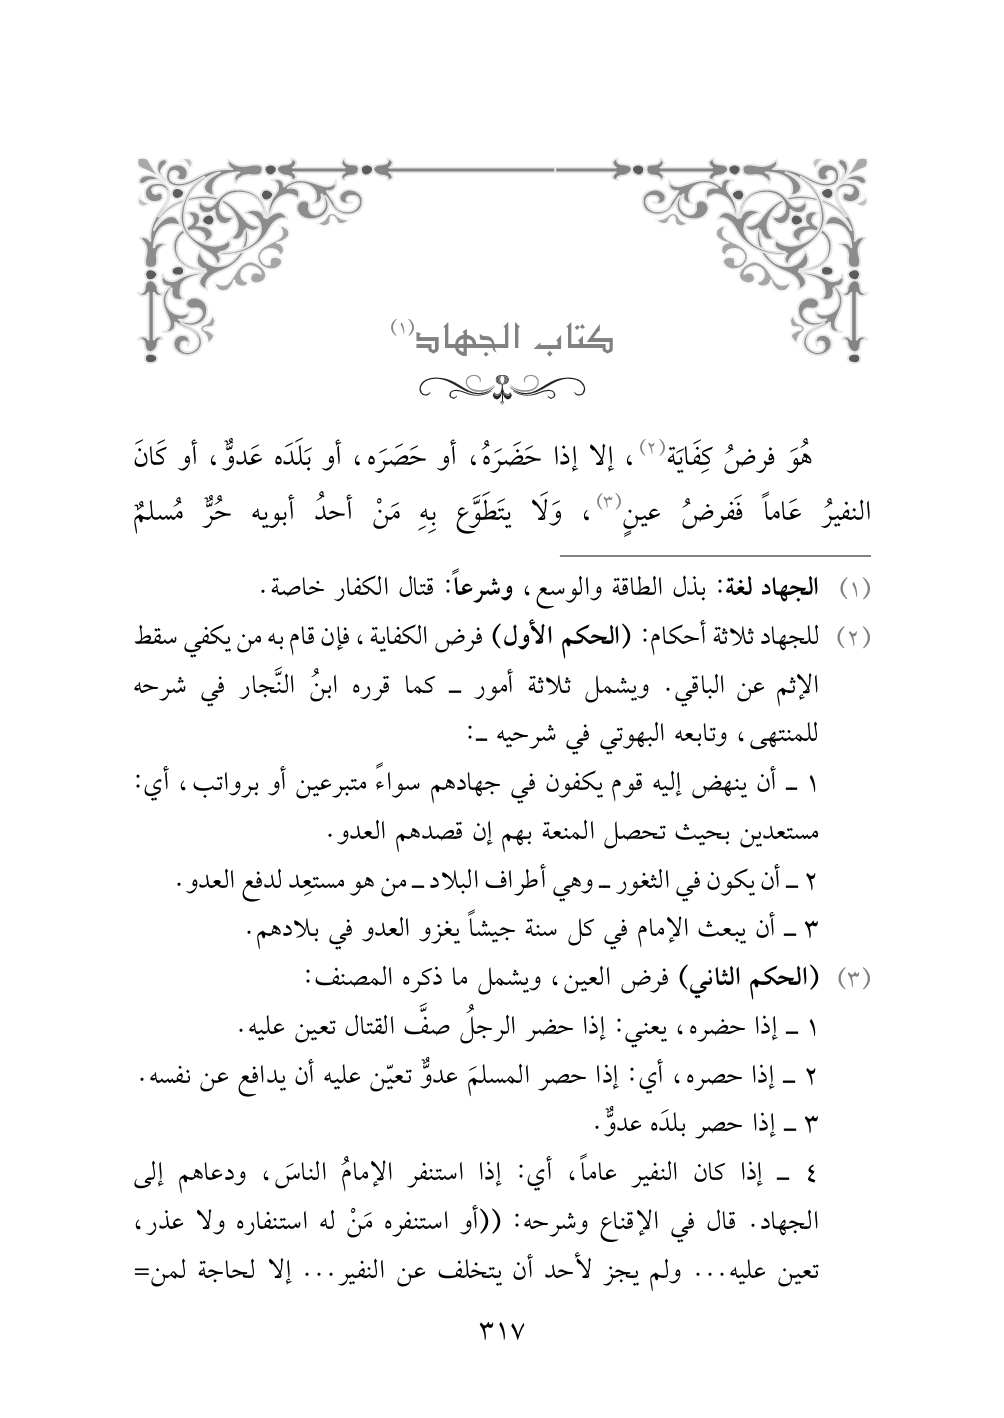 كتاب الجهاد(١)
هُوَ فرضُ كِفَايَة(٢)، إلا إذا حَضَرَهُ، أو حَصَرَه، أو بَلَدَه عَدوٌّ، أو كَانَ
النفيرُ عَاماً فَفرضُ عينٍ(٣)، وَلَا يتَطَوَّع بِهِ مَنْ أحدُ أبويه حُرٌّ مُسلمٌ
(١) الجهاد لغة: بذل الطاقة والوسع، وشرعاً: قتال الكفار خاصة.
(٢) للجهاد ثلاثة أحكام: (الحكم الأول) فرض الكفاية، فإن قام به من يكفي سقط
الإثم عن الباقي. ويشمل ثلاثة أمور ـ كما قرره ابنُ النَّجار في شرحه
للمنتهى، وتابعه البهوتي في شرحيه ـ:
١ ـ أن ينهض إليه قوم يكفون في جهادهم سواءً متبرعين أو برواتب، أي:
مستعدين بحيث تحصل المنعة بهم إن قصدهم العدو.
٢ ـ أن يكون في الثغور ـ وهي أطراف البلاد ـ من هو مستعِد لدفع العدو.
٣ ـ أن يبعث الإمام في كل سنة جيشاً يغزو العدو في بلادهم.
(٣) (الحكم الثاني) فرض العين، ويشمل ما ذكره المصنف:
١ ـ إذا حضره، يعني: إذا حضر الرجلُ صفَّ القتال تعين عليه.
٢ ـ إذا حصره، أي: إذا حصر المسلمَ عدوٌّ تعيّن عليه أن يدافع عن نفسه.
٣ ـ إذا حصر بلدَه عدوٌّ.
٤ ـ إذا كان النفير عاماً، أي: إذا استنفر الإمامُ الناسَ، ودعاهم إلى
الجهاد. قال في الإقناع وشرحه: ((أو استنفره مَنْ له استنفاره ولا عذر،
تعين عليه... ولم يجز لأحد أن يتخلف عن النفير... إلا لحاجة لمن=
٣١٧